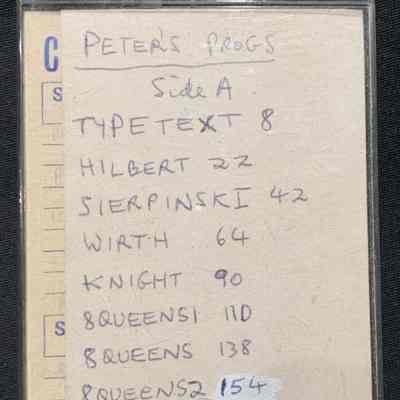 C
S
PETER'S PROGS
Side A
TYPETEXT 8
HILBERT 22
SIERPINSKI 42
WIRTH 64
KNIGHT 90
8QUEENS1 110
8QUEENS 138
8QUEENS2 154
S